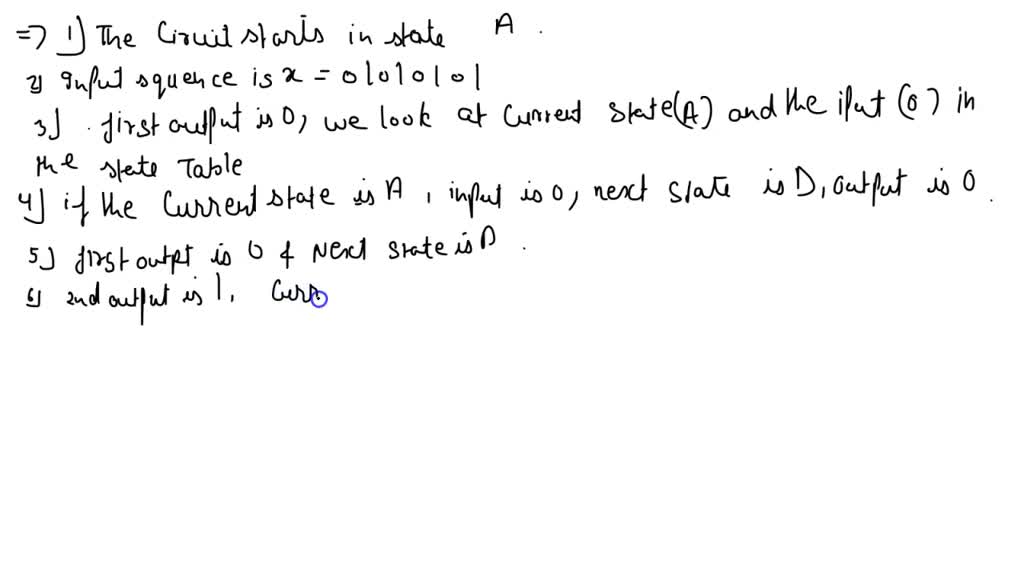 => 1) The Circuit starts in state A .
2) Input squence is x = 0 1 0 1 0 1 0 1
3) . first output is 0, we look at Current State(A) and the iput (0) in
the state Table
4) if the Current state is A , input is 0, next state is D, output is 0 .
5) first outpt is 0 & Next state is D .
6) 2nd output is 1, Curr